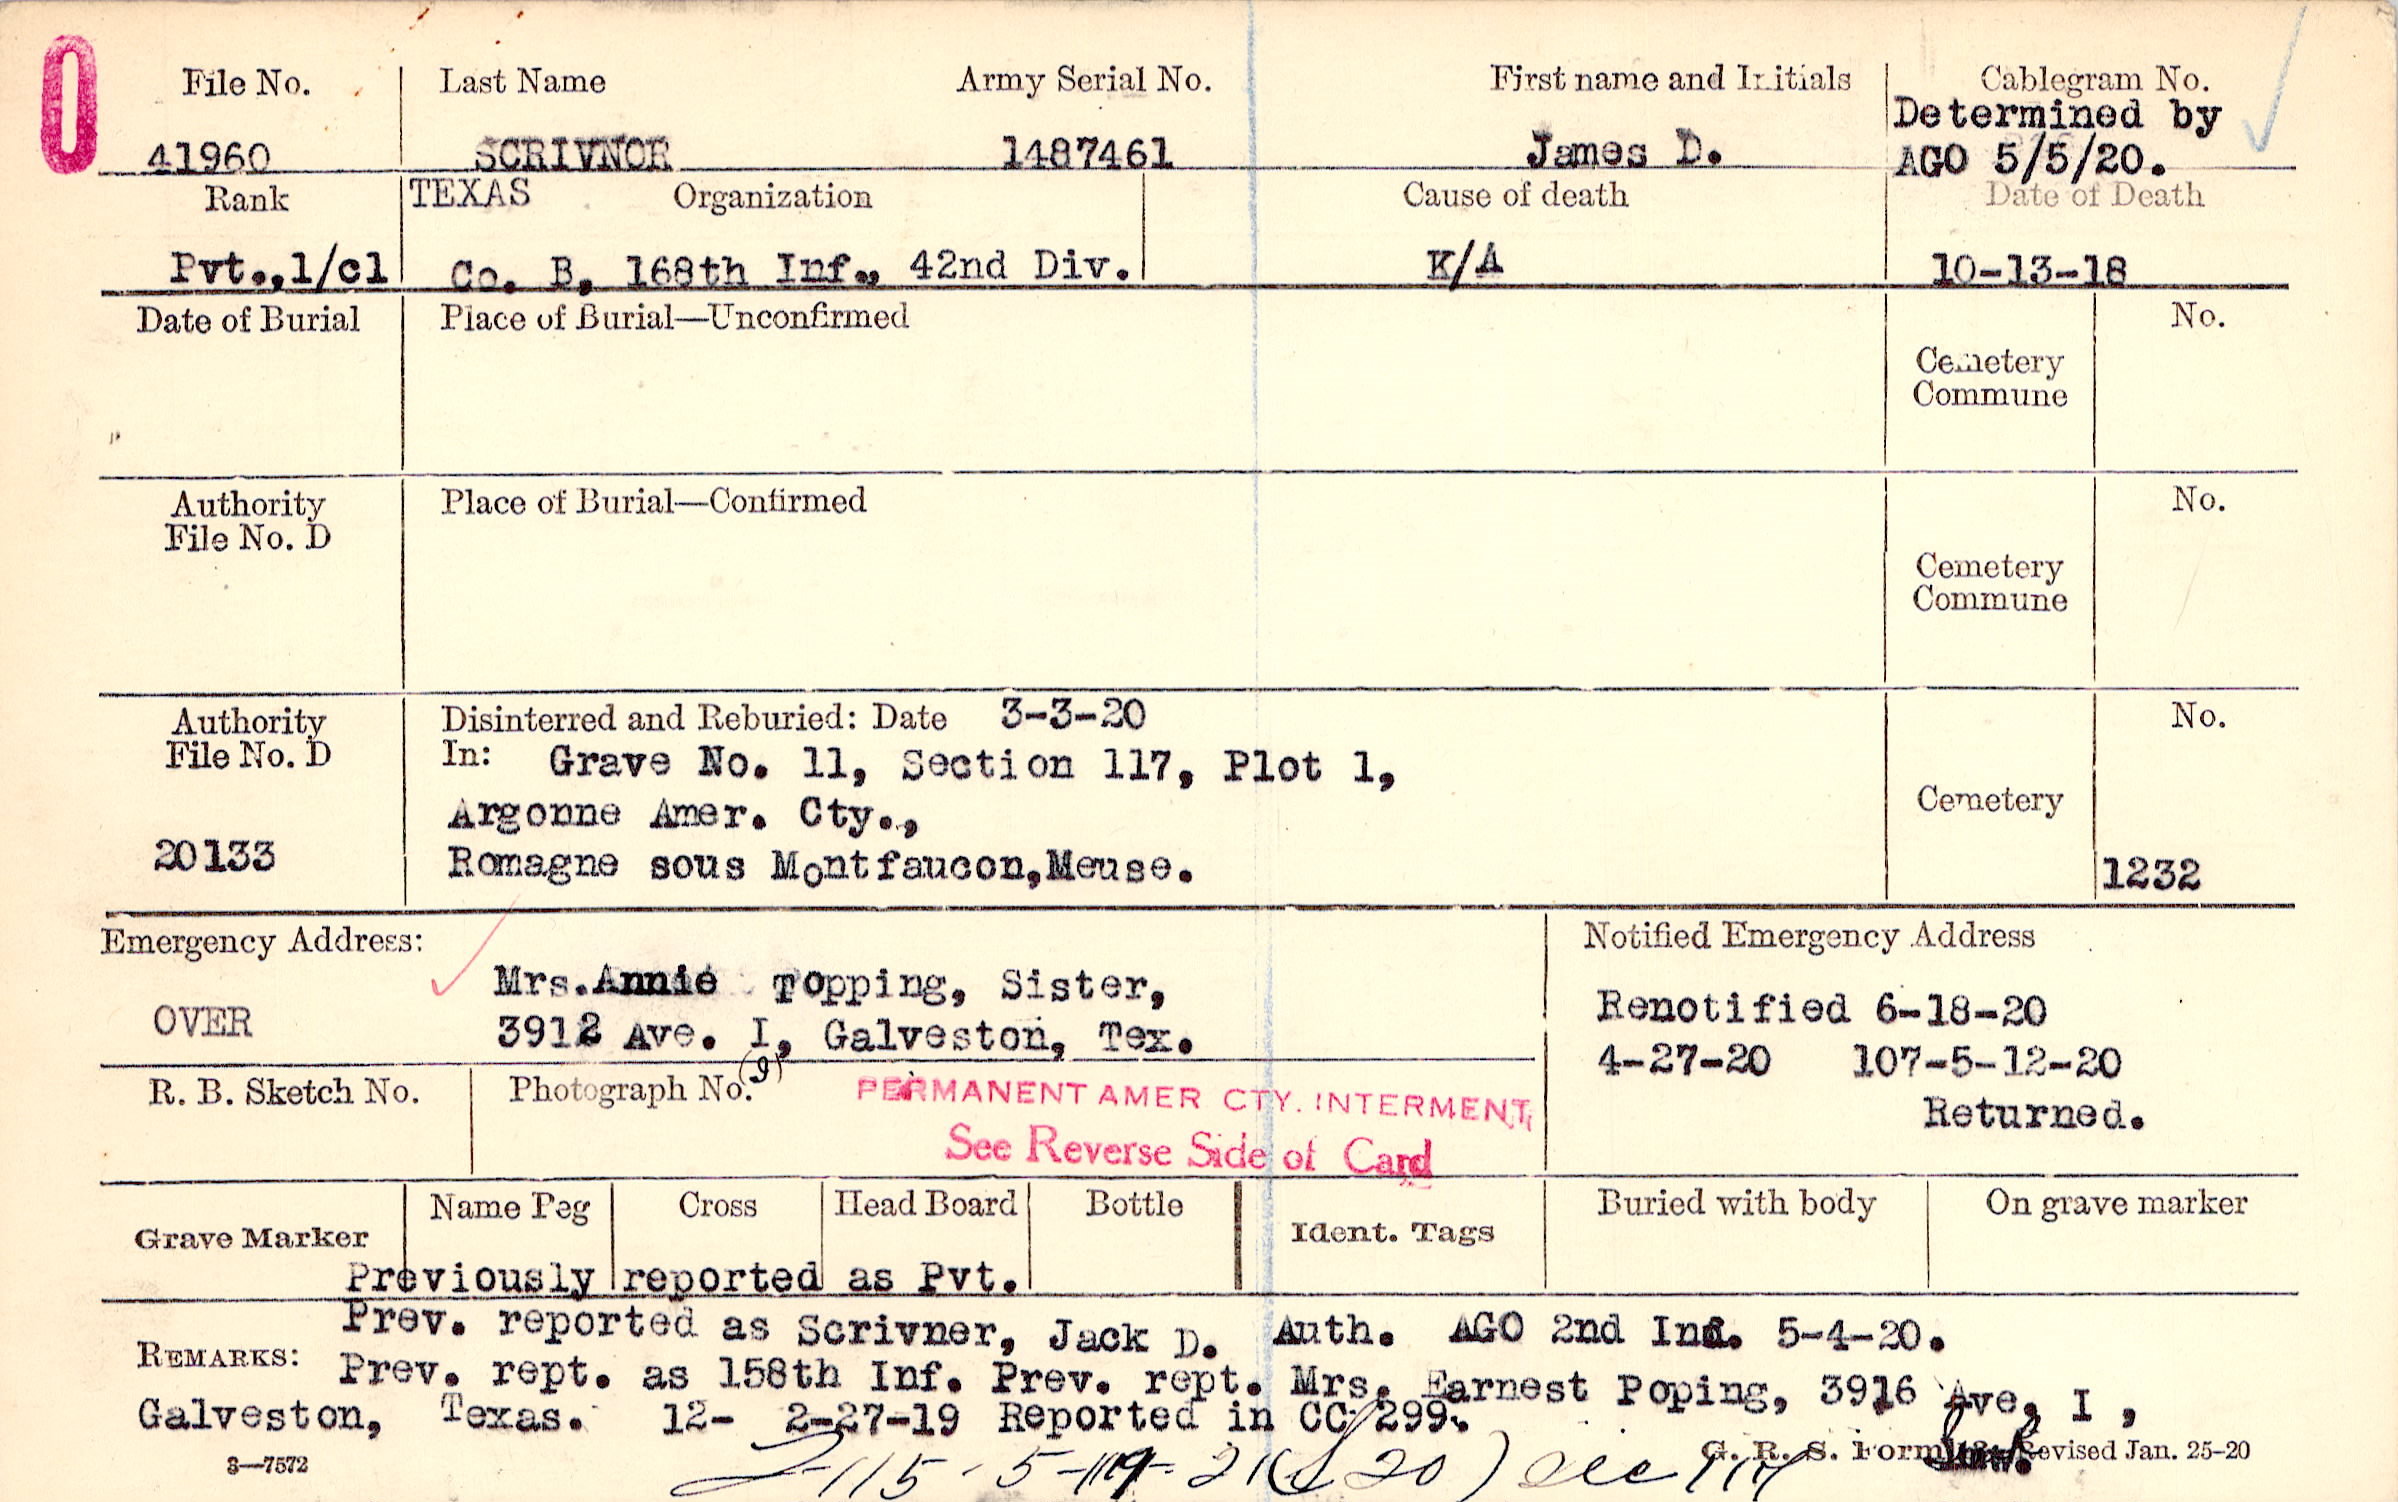 0
File No. Last Name Army Serial No. First name and Initials Cablegram No.
Determined by
41960 SCRIVNOR 1487461 James D. AGO 5/5/20.
Rank TEXAS Organization Cause of death Date of Death
Pvt.,1/cl Co. B, 168th Inf., 42nd Div. K/A 10-13-18
Date of Burial Place of Burial—Unconfirmed No.
Cemetery
Commune
Authority Place of Burial—Confirmed No.
File No. D
Cemetery
Commune
Authority Disinterred and Reburied: Date 3-3-20 No.
File No. D In: Grave No. 11, Section 117, Plot 1,
Argonne Amer. Cty., Cemetery
20133 Romagne sous Montfaucon,Meuse. 1232
Emergency Address: Notified Emergency Address
Mrs.Annie Topping, Sister, Renotified 6-18-20
OVER 3912 Ave. I, Galveston, Tex. 4-27-20 107-5-12-20
R. B. Sketch No. Photograph No. (9) PERMANENT AMER CTY. INTERMENT Returned.
See Reverse Side of Card
Name Peg Cross Head Board Bottle Buried with body On grave marker
Grave Marker Ident. Tags
Previously reported as Pvt.
Prev. reported as Scrivner, Jack D. Auth. AGO 2nd Ind. 5-4-20.
REMARKS: Prev. rept. as 158th Inf. Prev. rept. Mrs. Earnest Poping, 3916 Ave, I ,
Galveston, Texas. 12- 2-27-19 Reported in CC 299.
3—7572 G. R. S. Form Revised Jan. 25-20